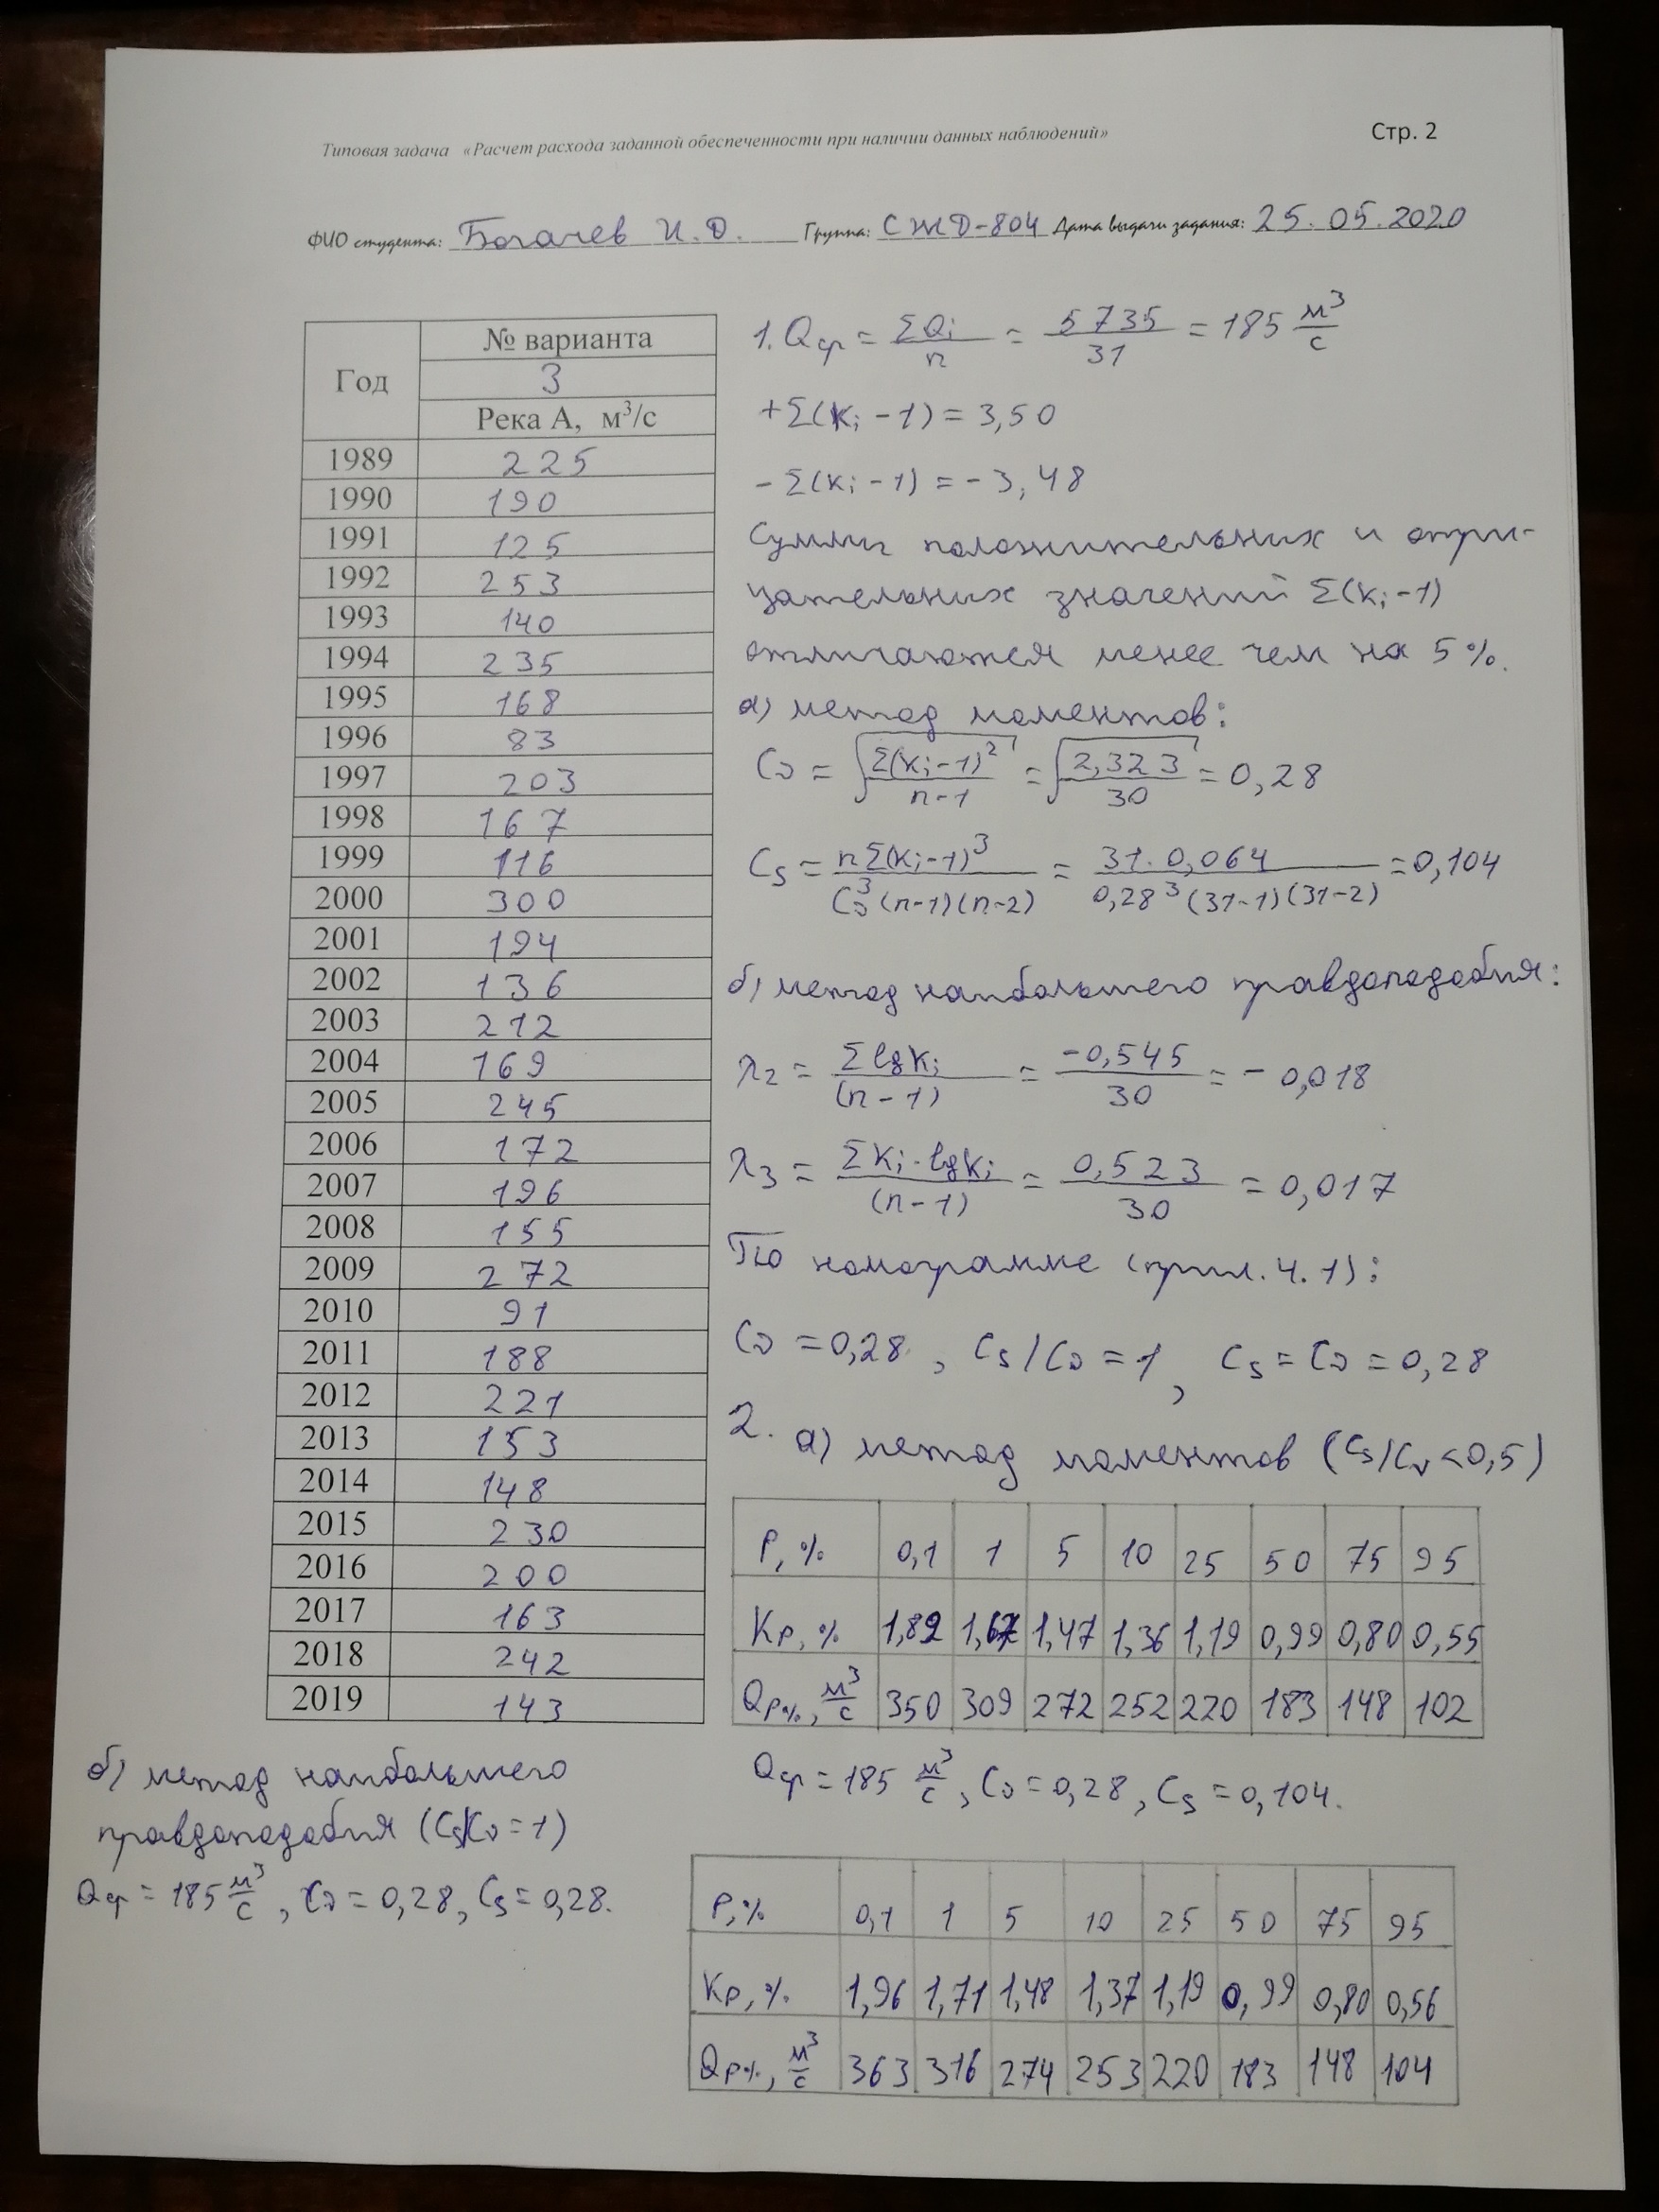 Стр. 2
Типовая задача «Расчет расхода заданной обеспеченности при наличии данных наблюдений»
ФИО студента: Богачев И.Д. Группа: СЖД-804 Дата выдачи задания: 25.05.2020
Год № варианта
3
Река А, м³/с
1989 225
1990 190
1991 125
1992 253
1993 140
1994 235
1995 168
1996 83
1997 203
1998 167
1999 116
2000 300
2001 194
2002 136
2003 212
2004 169
2005 245
2006 172
2007 196
2008 155
2009 272
2010 91
2011 188
2012 221
2013 153
2014 148
2015 230
2016 200
2017 163
2018 242
2019 143
1. Qср = ΣQi / n = 5735 / 31 = 185 м³/с
+Σ(Ki - 1) = 3,50
-Σ(Ki - 1) = -3,48
Суммы положительных и отри-
цательных значений Σ(Ki-1)
отличаются менее чем на 5%.
а) метод моментов:
Cv = √(Σ(Ki-1)² / n-1) = √(2,323 / 30) = 0,28
Cs = nΣ(Ki-1)³ / Cv³(n-1)(n-2) = 31·0,064 / 0,28³(31-1)(31-2) = 0,104
б) метод наибольшего правдоподобия:
λ2 = ΣlgKi / (n-1) = -0,545 / 30 = -0,018
λ3 = ΣKi·lgKi / (n-1) = 0,523 / 30 = 0,017
По номограмме (прил. 4.1):
Cv = 0,28, Cs/Cv = 1, Cs = Cv = 0,28
2. а) метод моментов (Cs/Cv<0,5)
P, % 0,1 1 5 10 25 50 75 95
Kp, % 1,89 1,67 1,47 1,36 1,19 0,99 0,80 0,55
Qp%, м³/с 350 309 272 252 220 183 148 102
Qср = 185 м³/с, Cv = 0,28, Cs = 0,104.
б) метод наибольшего
правдоподобия (Cs/Cv = 1)
Qср = 185 м³/с, Cv = 0,28, Cs = 0,28.
P, % 0,1 1 5 10 25 50 75 95
Kp, % 1,96 1,71 1,48 1,37 1,19 0,99 0,80 0,56
Qp%, м³/с 363 316 274 253 220 183 148 104